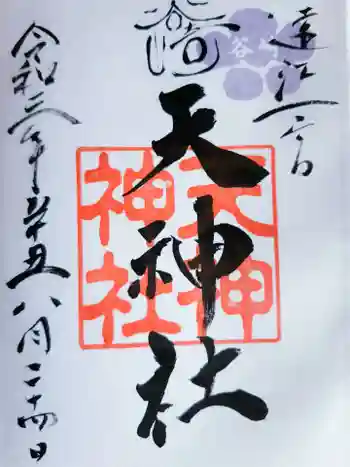 遠江一
天神社
天神
神社
令和三年辛丑八月二十四日